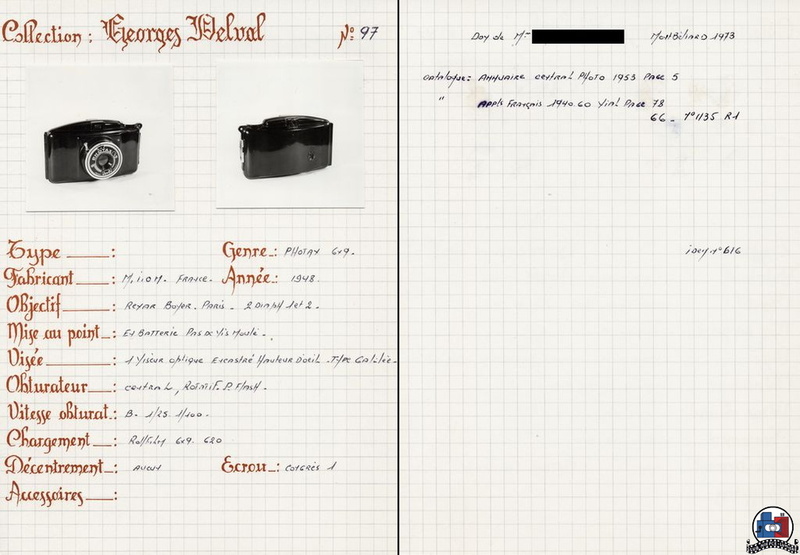 Collection : Georges Delval Nº 97
Type : Genre : PHOTAX 6x9.
Fabricant : M.I.O.M. FRANCE. Année : 1948.
Objectif : REXAR BOYER. PARIS. 2 DIAPH 1et 2.
Mise au point : EN BATTERIE PAS DE VIS MOULÉ.
Visée : 1 VISEUR OPTIQUE ENCASTRÉ HAUTEUR D'OEIL. TYPE GALILÉE.
Obturateur : CENTRAL, ROTATIF. P. FLASH.
Vitesse obturat. : B. 1/25 1/100.
Chargement : ROLLFILM 6x9. 620
Décentrement : AUCUN Ecrou : CONGRÈS 1
Accessoires :
DON de Mr MONTBÉLIARD 1973
CATALOGUE: ANNUAIRE CENTRAL PHOTO 1953 PAGE 5
" APPts FRANÇAIS 1940.60 VIAL PAGE 78
66 - N° 1135 R1
IDEM N° 616